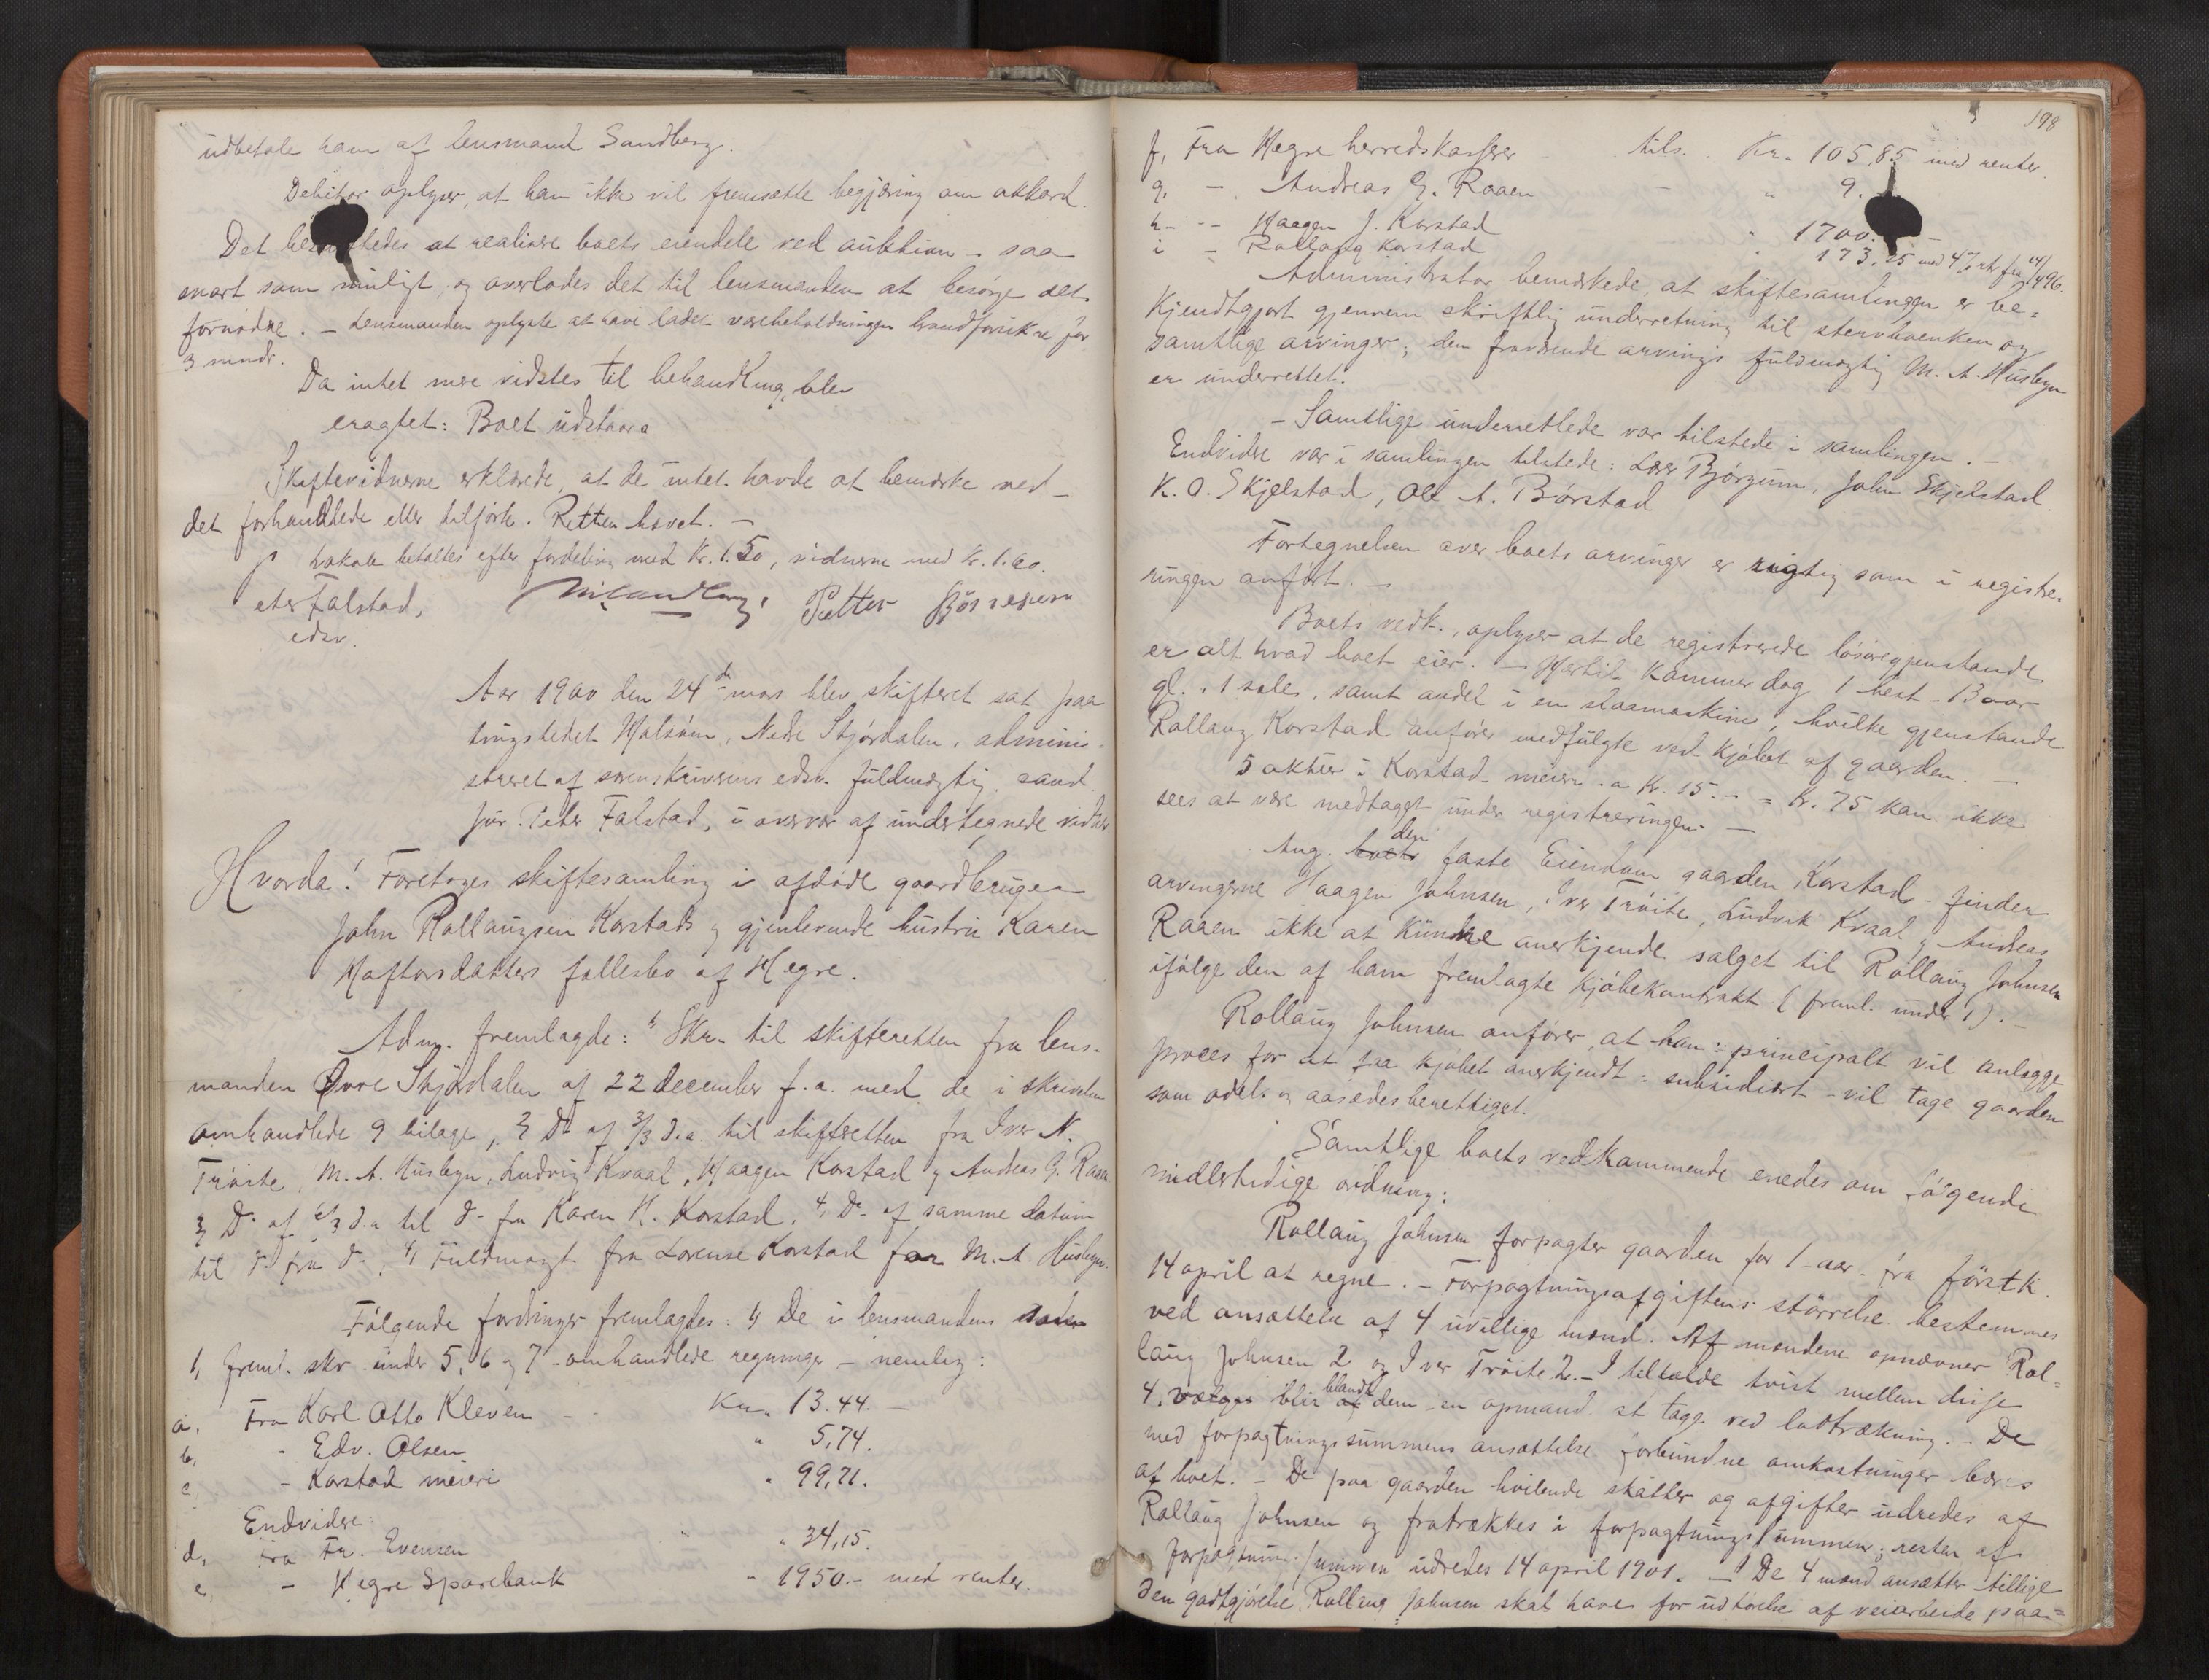 udbetale ham af lensmand Sandberg.
Debitor oplyser, at han ikke vil fremsætte begjæring om akkord.
Det besluttedes at realisere boets eiendele ved auktion - saa
snart som muligt, og overlodes det til lensmanden at besørge det
fornødne. - Lensmanden oplyste at have ladet varebeholdningen brandforsikre for
3 mndr.
Da intet mere vidstes til behandling, blev
eragtet: Boet udstaar.
Skiftevidnerne erklærede, at de intet havde at bemærke ved
det forhandlede eller tilførte. Retten hævet. -
Lokale betaltes efter fordeling med Kr. 1.50, vidnerne med Kr. 1.60.
Peter Falstad, Petter
edsv.
Aar 1900 den 24de mars blev skifteret sat paa
tingstedet Halsøen, Nedre Stjørdalen, adminis-
streret af sorenskriverens edsv. fuldmægtig cand.
jur. Peter Falstad, i overvær af undertegnede vidner
Hvorda! Foretoges skiftesamling i afdøde gaardbruger
John Rollaugsen Korstads og gjenlevende hustru Karen
Haftorsdatters fællesbo af Hegre.
Adm. fremlagde: 1, Skr. til skifteretten fra lens-
manden Øvre Stjørdalen af 22 december f.a. med de i skrivelsen
omhandlede 9 bilage, 2, Do af 3/3 d.a. til skifteretten fra Iver N.
Trøite, M. A. Husbyn, Ludvig Kvaal, Haagen Korstad og Andreas G. Raaen
3, Do af /3 d.a til do fra Karen H. Korstad. 4, Do af samme datum
til do fra do, 4, Fuldmagt fra Lorense Korstad for M. A. Husbyn.
Følgende fordringer fremlagdes: 1, De i lensmandens
1, freml. skr under 5, 6 og 7 omhandlede regninger - nemlig:
a, Fra Karl Otto Kleven - Kr. 13.44. -
b, - Edv. Olsen " 5,74.
c, - Korstad meieri " 99,71.
Endvidere:
d, Fra Fr. Evensen " " 34,15.
e, - Hegre Sparebank " 1950.- med renter.
198
f, Fra Hegre herredskasserer tils. Kr. 105,85 med renter.
g, - Andreas G. Raaen - " 9.
h - - Haagen J. Korstad " 1700. -
i - Rollaug Korstad " 173,25 med 4% rte fra 14/4 96.
Administrator bemærkede, at skiftesamlingen er be-
kjendtgjort gjennem skriftlig underretning til stervboenken og
samtlige arvinger; den fraværende arvings fuldmægtig M. A. Husbyn
er underrettet.
- Samtlige underrettede var tilstede i samlingen. -
Endvidere var i samlingen tilstede: Lars Bjørgum, John Skjelstad
K. O. Skjelstad, Ole A. Børstad
Fortegnelsen over boets arvinger er rigtig som i registre-
ringen anført. -
Boets vedk., oplyser at de registrerede løsøregjenstande
er alt hvad boet eier. - Hertil kommer dog 1 hest - 13 aar
gl. . 1 sæle, samt andel i en slaamaskine, hvilke gjenstande
Rollaug Korstad anfører medfulgte ved kjøbet af gaarden. -
5 aktier i Korstad meieri a Kr. 15.- = Kr. 75 kan ikke
sees at være medtaget under registreringen. -
Ang. boets den faste Eiendom gaarden Korstad - finder
arvingerne Haagen Johnsen, Iver Trøite, Ludvik Kvaal og Andreas
Raaen ikke at kunne anerkjende salget til Rollaug Johnsen
ifølge den af ham fremlagte kjøbekontrakt (freml. under 1). -
Rollaug Johnsen anfører, at han: principalt vil anlægge
proces for at faa kjøbet anerkjendt: subsidiært - vil tage gaarden
som odels- og aasædesberettiget.
Samtlige boets vedkommende enedes om følgende
midlertidige ordning:
Rollaug Johnsen forpagter gaarden for 1 aar fra førstk.
14 april at regne. - Forpagtningsafgiftens størrelse bestemmes
ved ansættelse af 4 uvillige mænd. Af mændene opnævner Rol-
laug Johnsen 2 og Iver Trøite 2. - I tilfælde tvist mellem disse
4, blir af blandt dem en opmand at tage ved lodtrækning. - De
med forpagtningssummens ansættelse forbundne omkostninger bæres
af boet. - De paa gaarden hvilende skatter og afgifter udredes af
Rollaug Johnsen og fratrækkes i forpagtningssummen; resten af
forpagtningssummen udredes 14 april 1901. - De 4 mænd ansætter tillige
den godtgjørelse Rollaug Johnsen skal have for udførelse af veiarbeide paa-